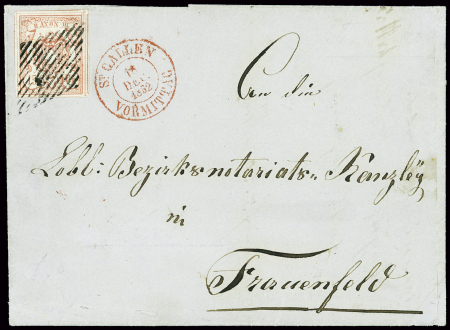 RAYON
ST GALLEN
DEC.
1852
VORMITTAG
An die
Lobl: Bezirksnotariats-Kanzley
in
Frauenfeld